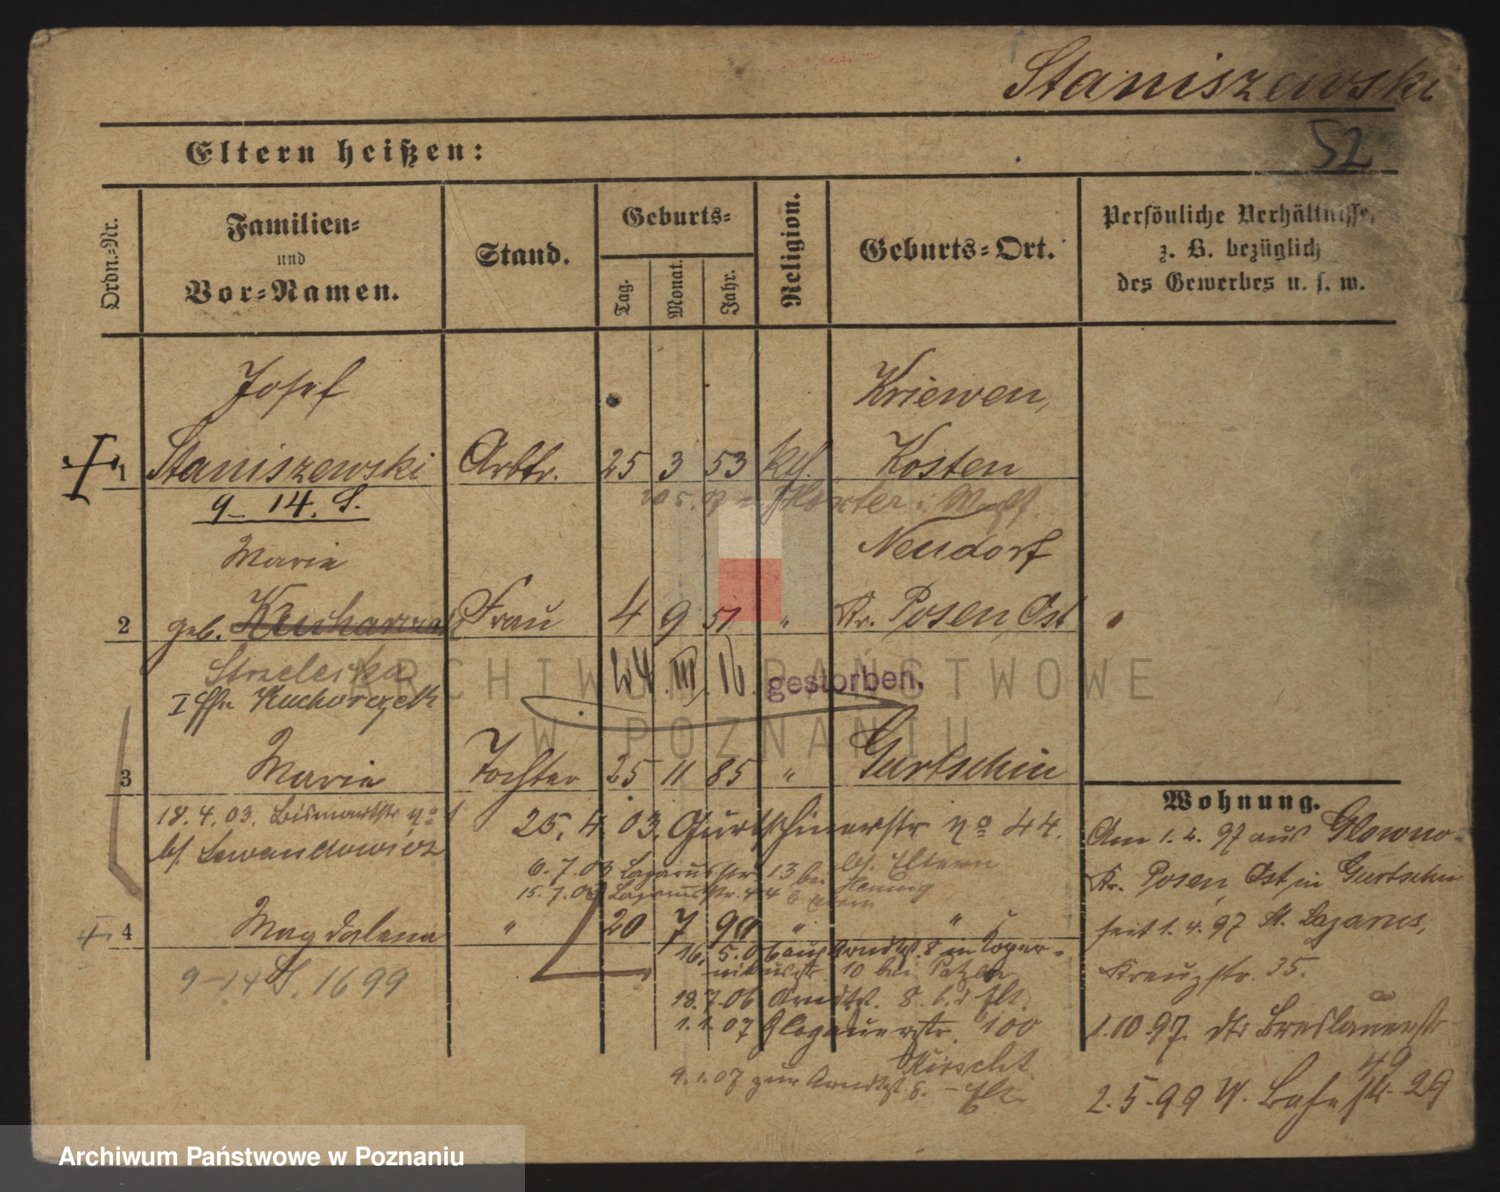 Staniszewski
52
Eltern heißen:
Ordn.-Nr.
Familien-
und
Vor-Namen.
Stand.
Geburts-
Tag.
Monat.
Jahr.
Religion.
Geburts-Ort.
Persönliche Verhältnisse,
z. B. bezüglich
des Gewerbes u. s. w.
Josef Kriewen,
1 Staniszewski Arbtr. 25 3 53 kth. Kosten
9-14. S.
Marie Neudorf
2 geb. Kucharzak Frau 4 9 51 " Kr. Posen, Ost
Strzelecka 24. III. 16. gestorben.
Kuchorczek
3 Marie Tochter 25 11 85 " Gurtschin
18. 4. 03. Bismarckstr No 1
bs. Lewandowicz
25. 4. 03. Gurtschinerstr No 44.
6. 7. 03 Lazarusstr. 13 bei Hennig
15. 7. 03 Lazarusstr. 44 b Eltern
4 Magdalena " 20 7 90 " "
9-14 S. 1699
16. 5. 06 aus Arndtst. 8 in Koper-
nikusstr 10 bei
18. 7. 06 Arndtst. 8. b. d Elt.
1. 1. 07 Glogauerstr. 100
9. 1. 07 zur Arndtst 8. - Elt.
Wohnung.
Am 1. 2. 97 aus Glowno-
Kr. Posen, Ost, in Gurtschin
seit 1. 4. 97 St. Lazarus,
Kreuzstr. 35.
1. 10 97. dto Breslauerstr
49
2. 5. 99 W. Bahnstr. 29
ARCHIWUM PAŃSTWOWE
W POZNANIU
Archiwum Państwowe w Poznaniu